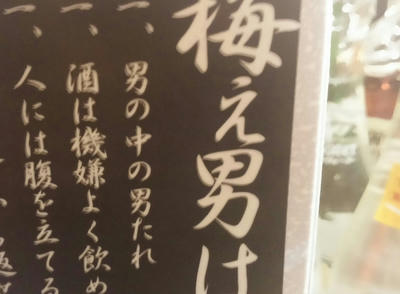 梅え男は
一、男の中の男たれ
一、酒は機嫌よく飲め
一、人には腹を立てる